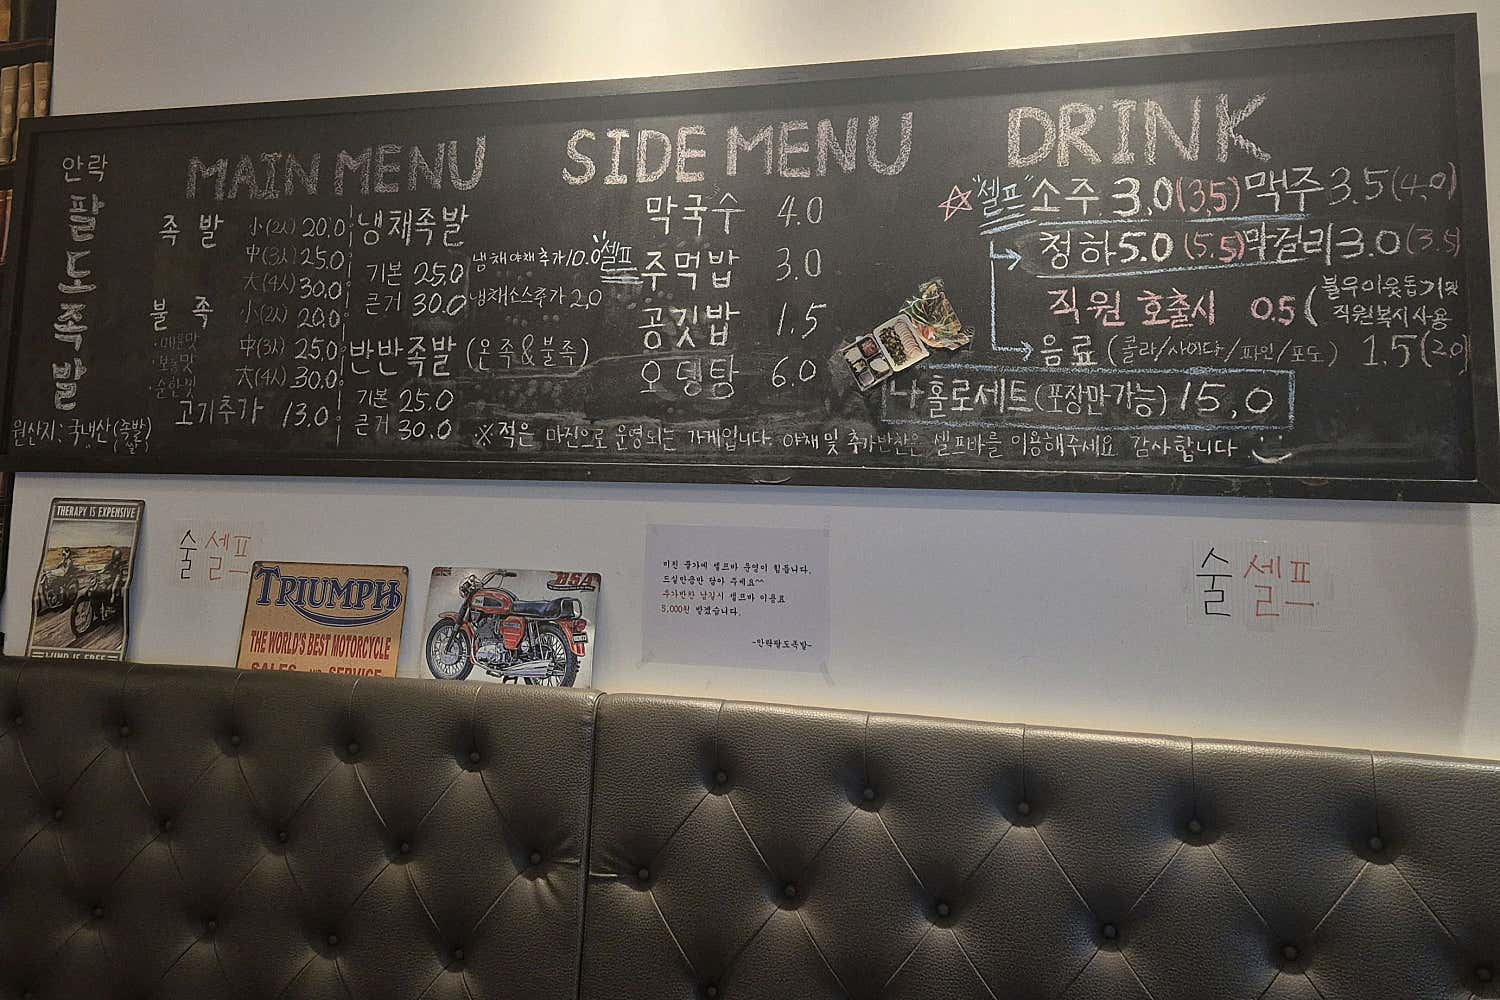 안락
팔도족발
원산지: 국내산(족발)
쌀
MAIN MENU
족발 小(2人) 20.0
中(3人) 25.0
大(4人) 30.0
불족 小(2人) 20.0
·매운맛
中(3人) 25.0
·보통맛
大(4人) 30.0
·순한맛
고기추가 13.0
냉채족발
기본 25.0
큰거 30.0
냉채야채추가 10.0
냉채소스추가 2.0
반반족발 (온족&불족)
기본 25.0
큰거 30.0
SIDE MENU
막국수 4.0
"셀프 주먹밥 3.0
공깃밥 1.5
오뎅탕 6.0
DRINK
☆"셀프" 소주 3.0 (3.5) 맥주 3.5 (4.0)
청하 5.0 (5.5) 막걸리 3.0 (3.5)
직원 호출시 0.5 (불우이웃돕기 및
직원복지사용
음료 (콜라/사이다/파인/포도) 1.5 (2.0)
나홀로세트(포장만가능) 15.0
※적은 마진으로 운영되는 가게입니다. 야채 및 추가반찬은 셀프바를 이용해주세요 감사합니다
THERAPY IS EXPENSIVE
WIND IS FREE
술 셀프
TRIUMPH
THE WORLD'S BEST MOTORCYCLE
SALES AND SERVICE
BSA
미친 물가에 셀프바 운영이 힘듭니다.
드실만큼만 담아 주세요^^
추가반찬 남길시 셀프바 이용료
5,000원 받겠습니다.
-안락팔도족발-
술 셀프